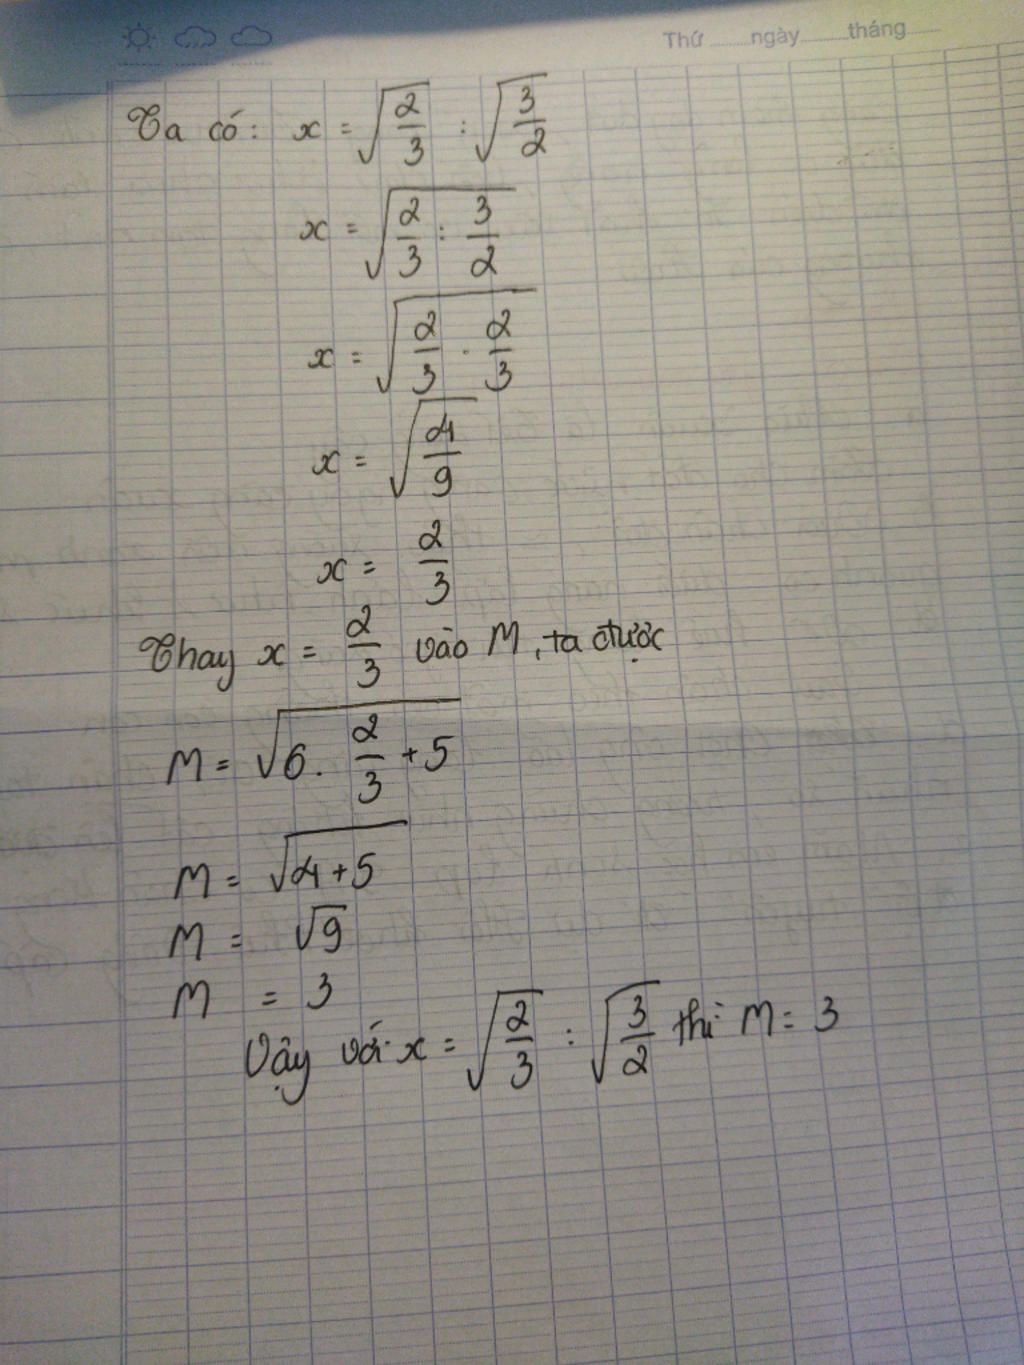 Thứ ........ngày........tháng........
Ta có: x = √(2/3) : √(3/2)
x = √(2/3 : 3/2)
x = √(2/3 . 2/3)
x = √(4/9)
x = 2/3
Thay x = 2/3 vào M, ta được
M = √(6. 2/3 + 5)
M = √(4+5)
M = √9
M = 3
Vậy với x = √(2/3) : √(3/2) thì M = 3